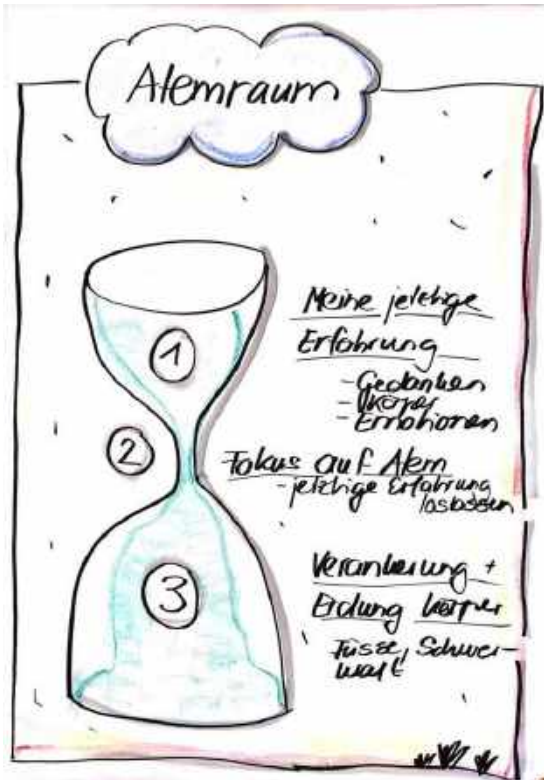 Atemraum
1
Meine jetzige
Erfahrung
- Gedanken
- Körper
- Emotionen
2
Fokus auf Atem
- jetzige Erfahrung
loslassen
3
Verankerung +
Erdung Körper
Füsse, Schwer-